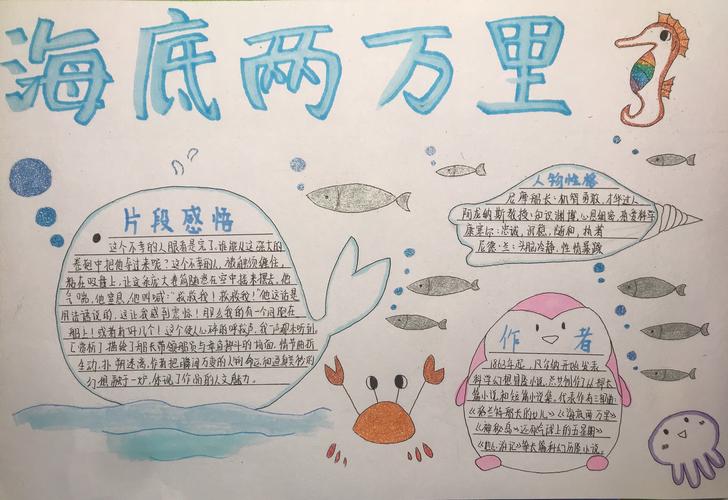 海底两万里
片段感悟
这个不幸的人眼看是完了,谁能从这强大的
卷抱中把他夺过来呢?这个不幸的人,被触须缠住,
粘在吸盘上,让这条巨大卷筒随意在空中摇来摆去,他
气喘,他窒息,他叫喊:“救救我!救救我!”他这话是
用法语说的,这让我感到震惊!那么我的有一个同胞在
船上!或者有好几个!这个使人心碎的呼救声,我一辈
【赏析】描绘了船长带领船员与章鱼搏斗的场面,情节曲折
生动,扑朔迷离,作者把瞬间万变的人物命运
幻想融于一炉,体现了作品的人文魅力。
人物性格
尼摩船长:机智勇敢,才华过人
阿龙纳斯教授:知识渊博,心思细密,热爱科学
康塞尔:忠诚,沉稳,随和,执着
尼德·兰:头脑冷静,性情暴躁
作者
1863年起,凡尔纳开始发表
科学幻想冒险小说,
篇小说和短篇小说集,代表作有三部曲:
《格兰特船长的儿女》《海底两万里》
《神秘岛》还有《气球上的五星期》
《地心游记》等大篇科幻历险小说。